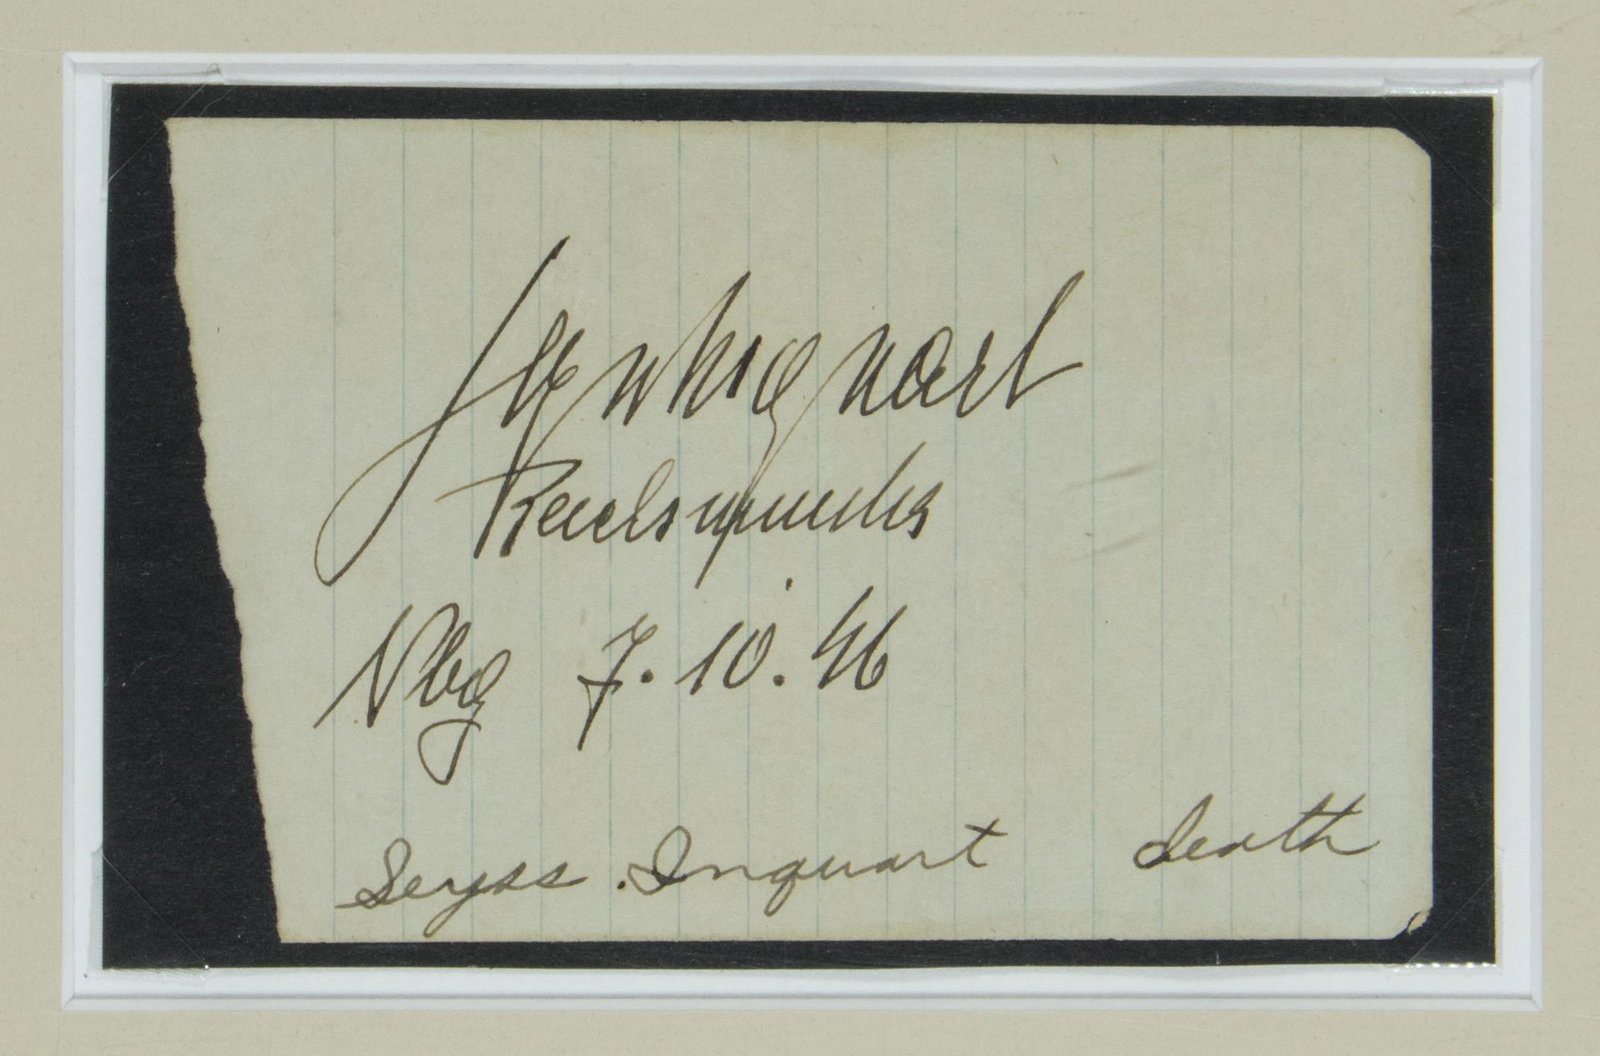 Seyss-Inquart
Reichsminister
Nbg 7.10.46
Seyss. Inquart death